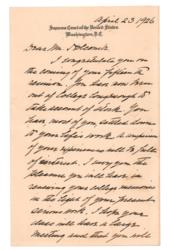 April 23 1926
Supreme Court of the United States
Washington, D.C.
Dear Mr.
I congratulate you
on the coming of your fiftieth
reunion. You have now been
out of College long enough to
take account of stock. You
have most of you settled down
to your life's work &
of your experiences will be full
of interest. I envy you the
pleasure you will have in
renewing your college memories
in the light of your present
work. I hope your
class will have a large
meeting and that you will